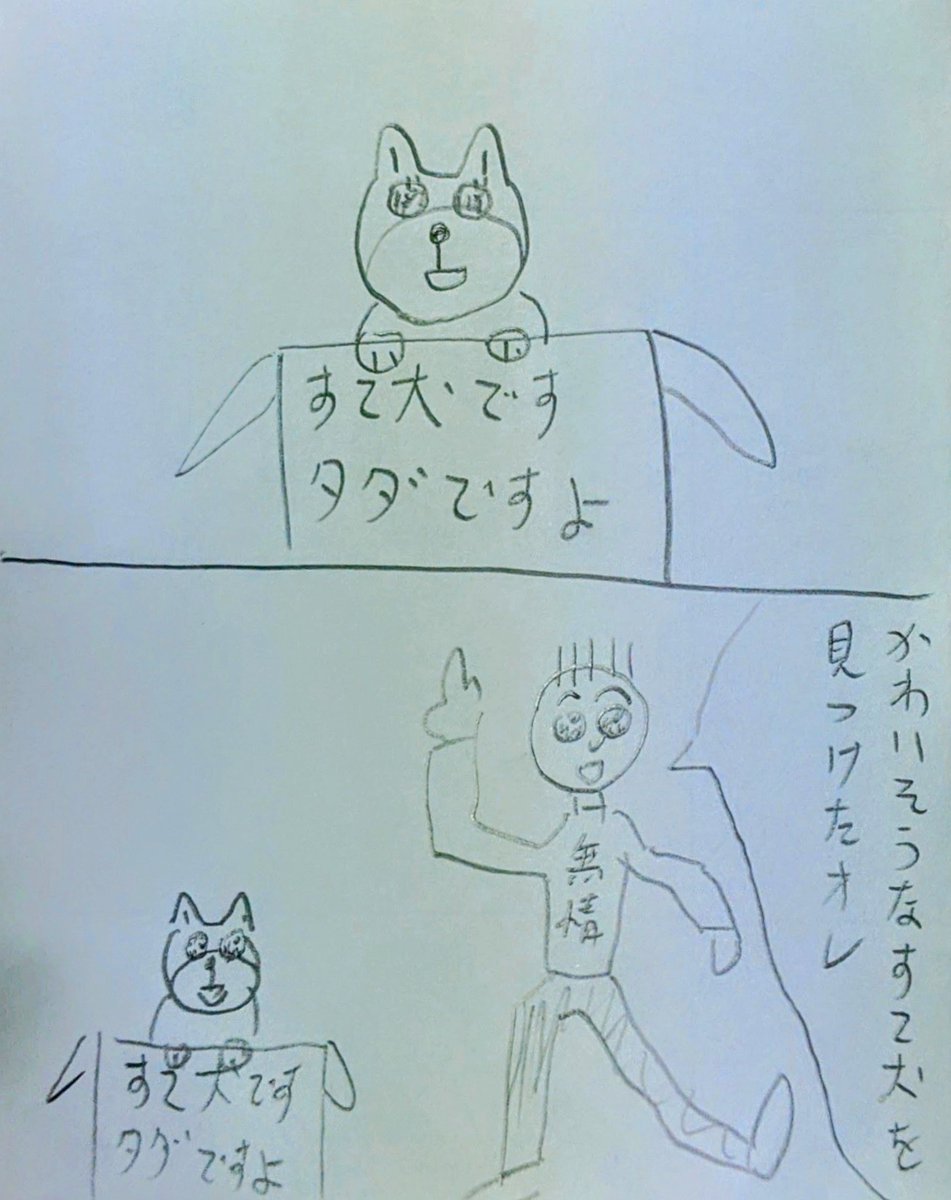 すて犬です
タダですよ
かわいそうなすて犬を
見つけたオレ
無情
すて犬です
タダですよ